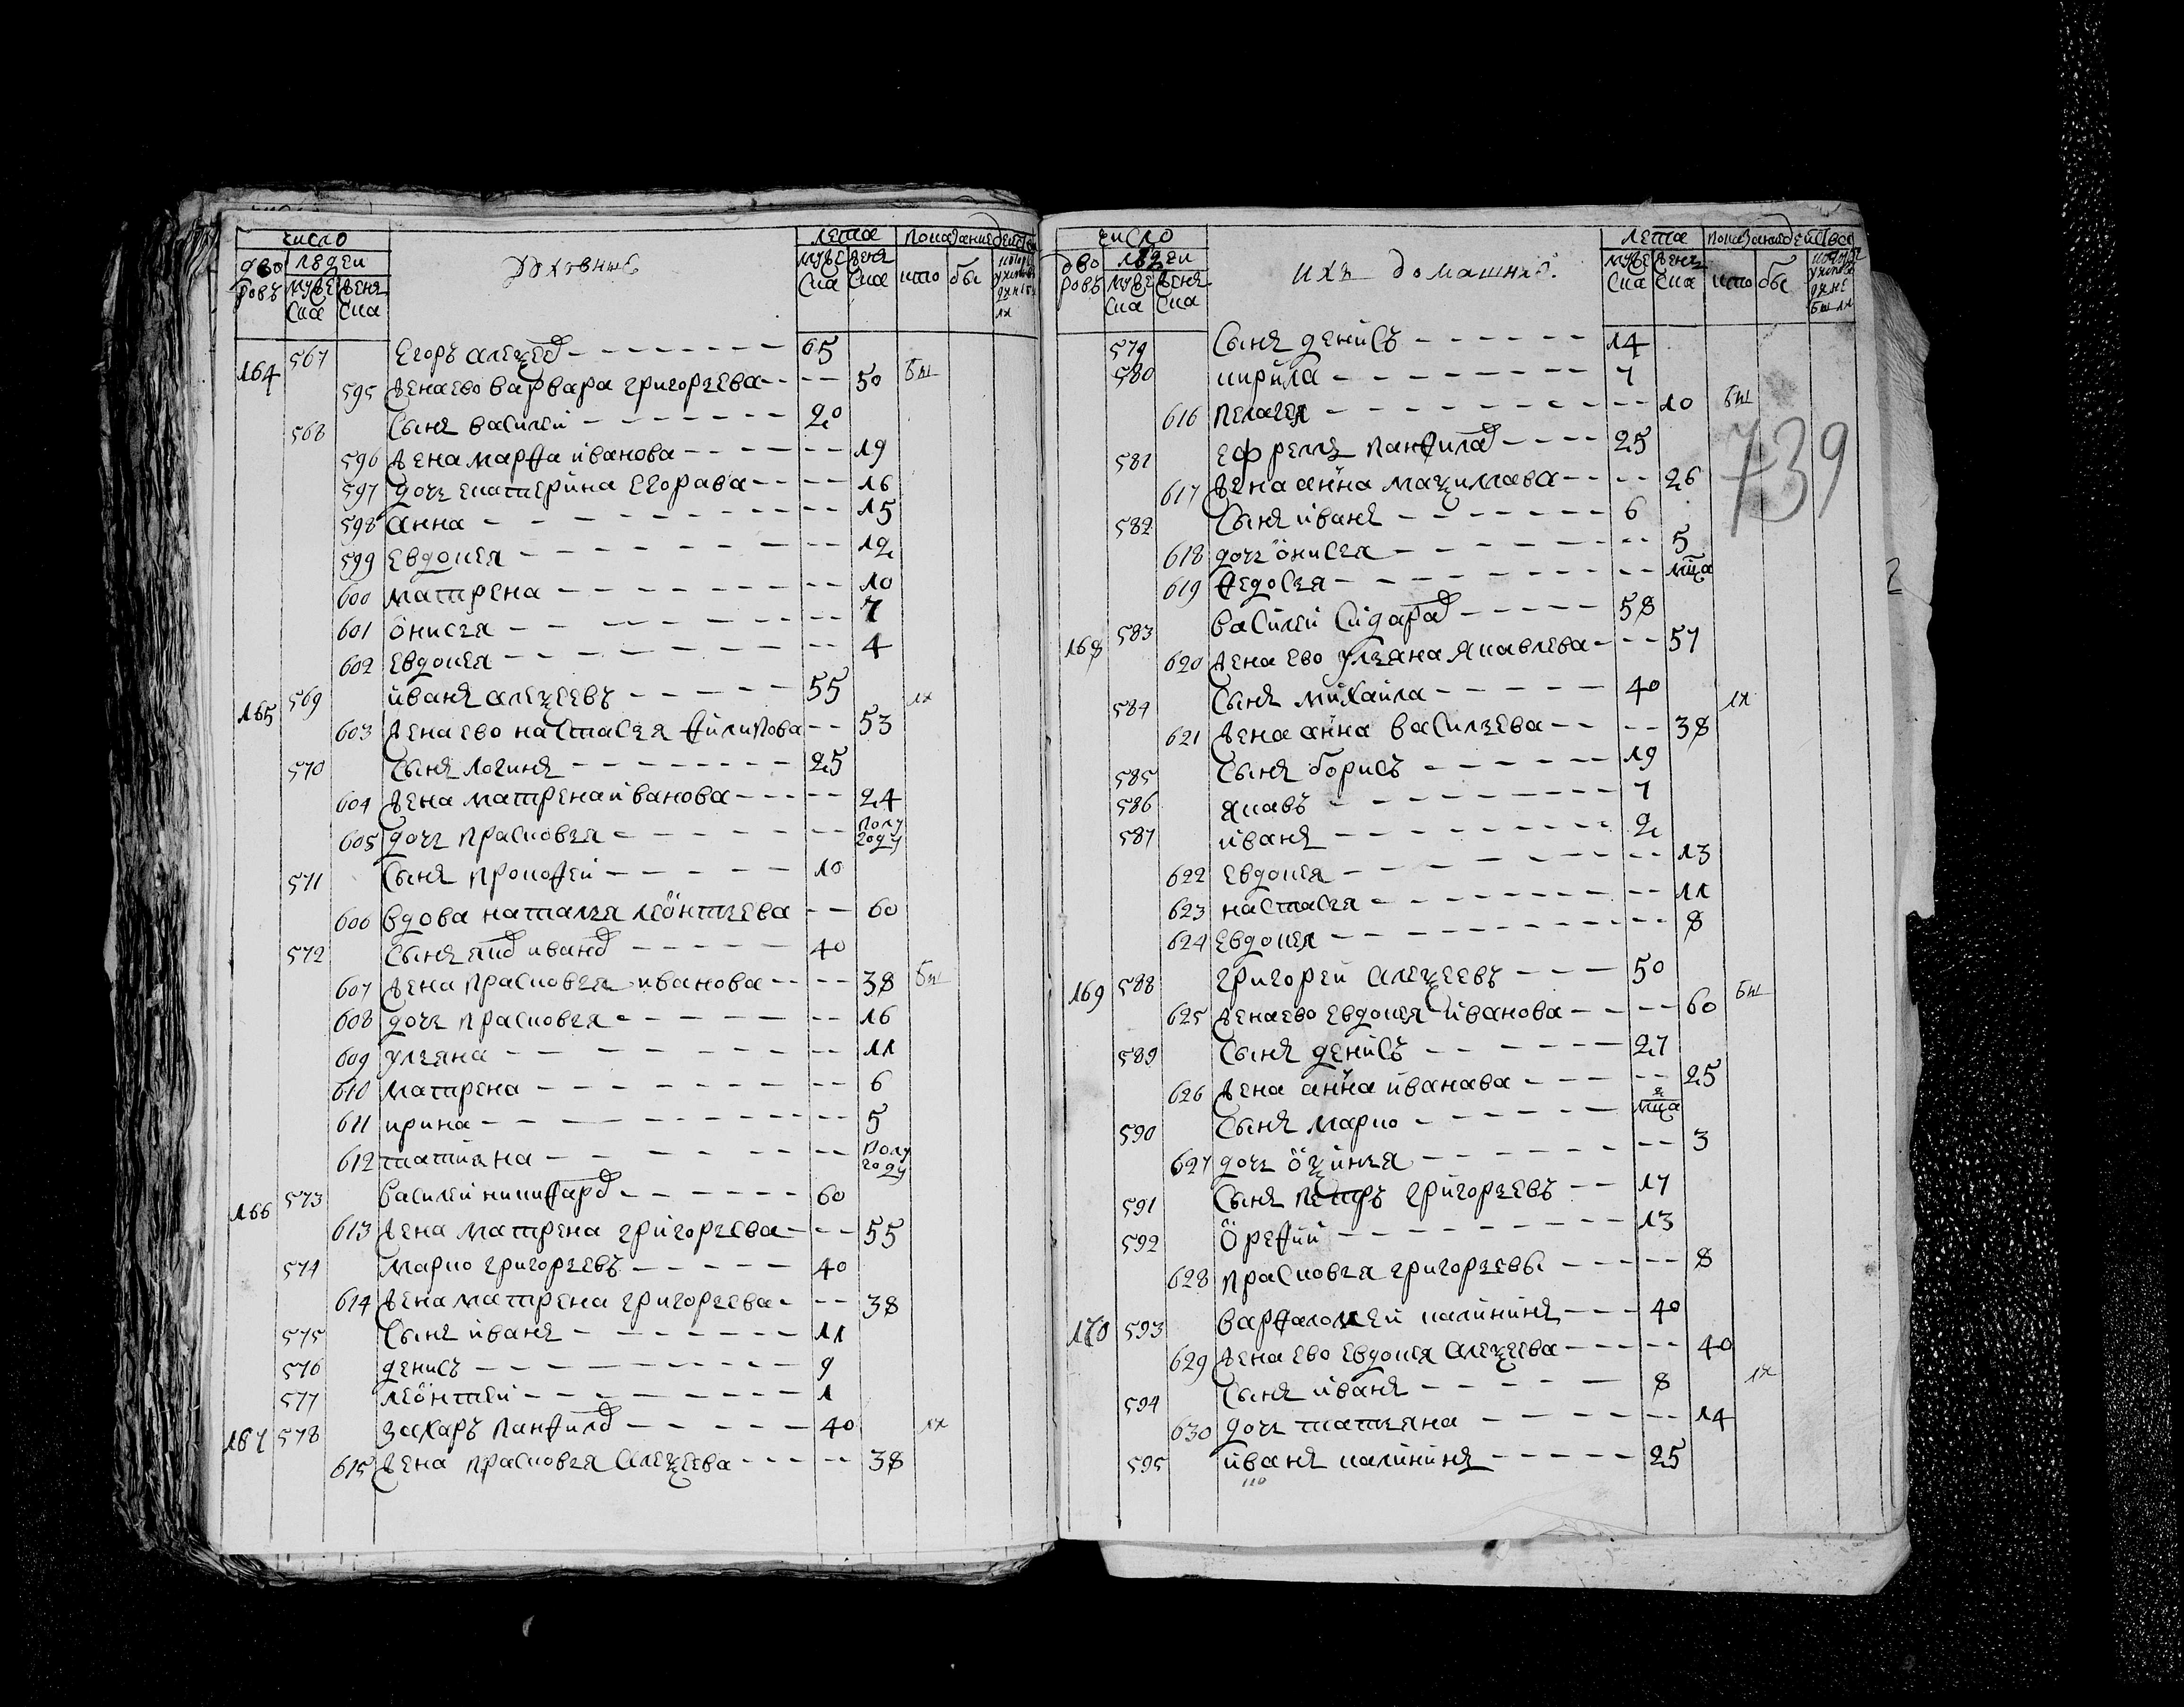 число
лета
показание действа
дво
ровъ
людеи
муже
ска
женъ
ска
Духовныѣ
муже
ска
женъ
ска
испо
обы
164 567 Егоръ алеѯеевъ 65
595 жена ево варвара григорьева 50 бы
568 Сынъ василей 20
596 жена марѳа иванова 19
597 дочь екатерина егорава 16
598 анна 15
599 евдокея 12
600 матрена 10
601 онисья 7
602 евдокея 4
165 569 иванъ алеѯеевъ 55 их
603 жена ево настасья ѳилипова 53
570 Сынъ логинъ 25
604 жена матрена иванова 24
605 дочь прасковья полу году
571 Сынъ прокоѳей 10
606 вдова наталья леонтьева 60
572 Сынъ яковъ ивановъ 40
607 жена прасковья иванова 38 бы
608 дочь прасковья 16
609 ульяна 11
610 матрена 6
611 ирина 5
612 татияна полу году
166 573 василей никиѳаровъ 60
613 жена матрена григорьева 55
574 марко григорьевъ 40
614 жена матрена григорьева 38
575 Сынъ иванъ 11
576 денисъ 9
577 леонтей 1
167 578 захаръ панѳиловъ 40 их
615 жена прасковья алеѯеева 38
число
лета
показание действа
дво
ровъ
людеи
муже
ска
женъ
ска
ихъ домашниѣ.
муже
ска
женъ
ска
испо
обы
579 Сынъ денисъ 14
580 кирила 7
616 пелагея 10 бы
739
581 ефремъ панѳиловъ 25
617 жена анна маѯимава 26
582 Сынъ иванъ 6
618 дочь онисья 5
619 ѳедосья мца
168 583 василей сидаровъ 58
620 жена ево ульяна яковлева 57
584 Сынъ михаила 40 их
621 жена анна васильева 38
585 Сынъ борисъ 19
586 якавъ 7
587 иванъ 2
622 евдокея 13
623 настасья 11
624 евдокея 8
169 588 григорей алеѯеевъ 50
625 жена ево евдокея иванова 60 бы
589 Сынъ денисъ 27
626 жена анна иванава 25
590 Сынъ марко мца
627 дочь оѯинья 3
591 Сынъ петръ григорьевъ 17
592 Ореѳий 13
628 прасковья григорьевы 8
170 593 варѳаломей калининъ 40
629 жена ево евдокея алеѯеева 40
594 Сынъ иванъ 8 их
630 дочь татьяна 14
595 иванъ калининъ 25